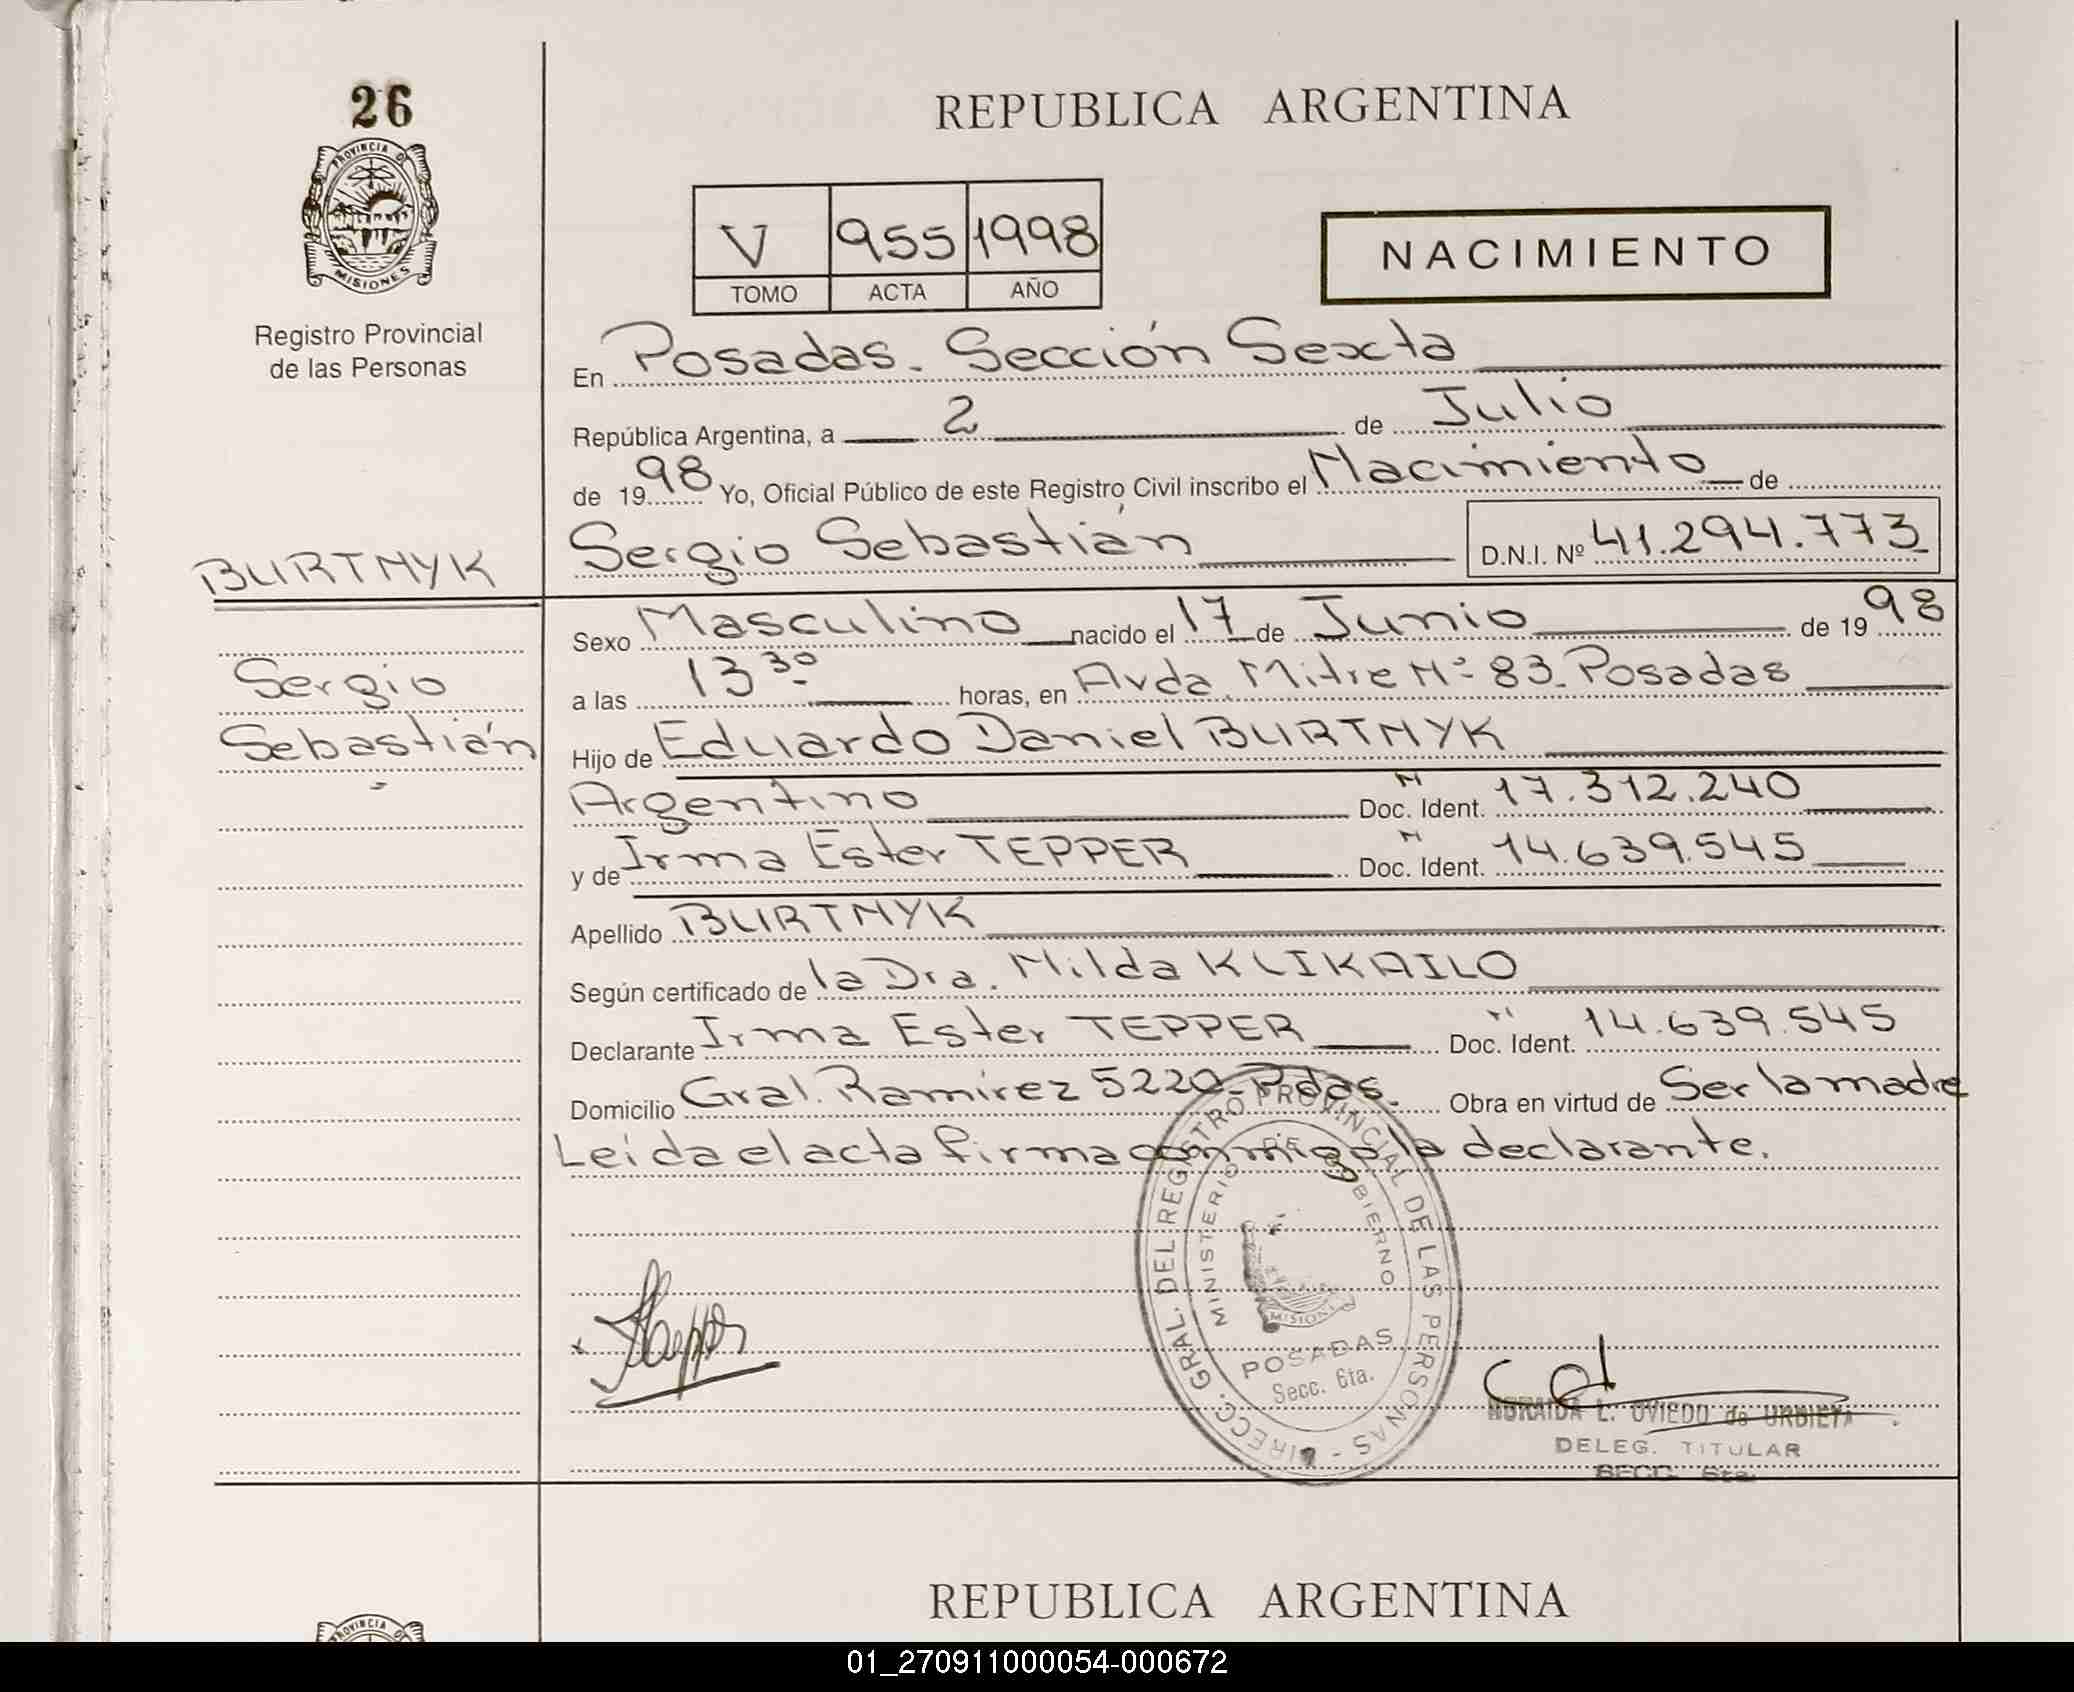 26
PROVINCIA D
MISIONES
Registro Provincial
de las Personas
REPUBLICA ARGENTINA
V 955 1998
TOMO ACTA AÑO
NACIMIENTO
En Posadas. Sección Sexta
República Argentina, a 2 de Julio
de 1998 Yo, Oficial Público de este Registro Civil inscribo el Nacimiento de
Sergio Sebastián D.N.I. Nº 41.294.773
BURTNYK
Sergio
Sebastián
Sexo Masculino nacido el 17 de Junio de 1998
a las 13 30 horas, en Avda. Mitre Nº 83. Posadas
Hijo de Eduardo Daniel BURTNYK
Argentino Doc. Ident. N 17.312.240
y de Irma Ester TEPPER Doc. Ident. N 14.639.545
Apellido BURTNYK
Según certificado de la Dra. Nilda KLIKAILO
Declarante Irma Ester TEPPER Doc. Ident. 14.639.545
Domicilio Gral. Ramírez 5220 - Pdas. Obra en virtud de Ser la madre
Leída el acta firma conmigo la declarante.
DIRECC. GRAL. DEL REGISTRO PROVINCIAL DE LAS PERSONAS -
MINISTERIO DE GOBIERNO
MISIONES
POSADAS
Secc. 6ta.
L. OVIEDO de URBIETA
DELEG. TITULAR
SECC. 6ta.
REPUBLICA ARGENTINA
PROVINCIA D
01_270911000054-000672